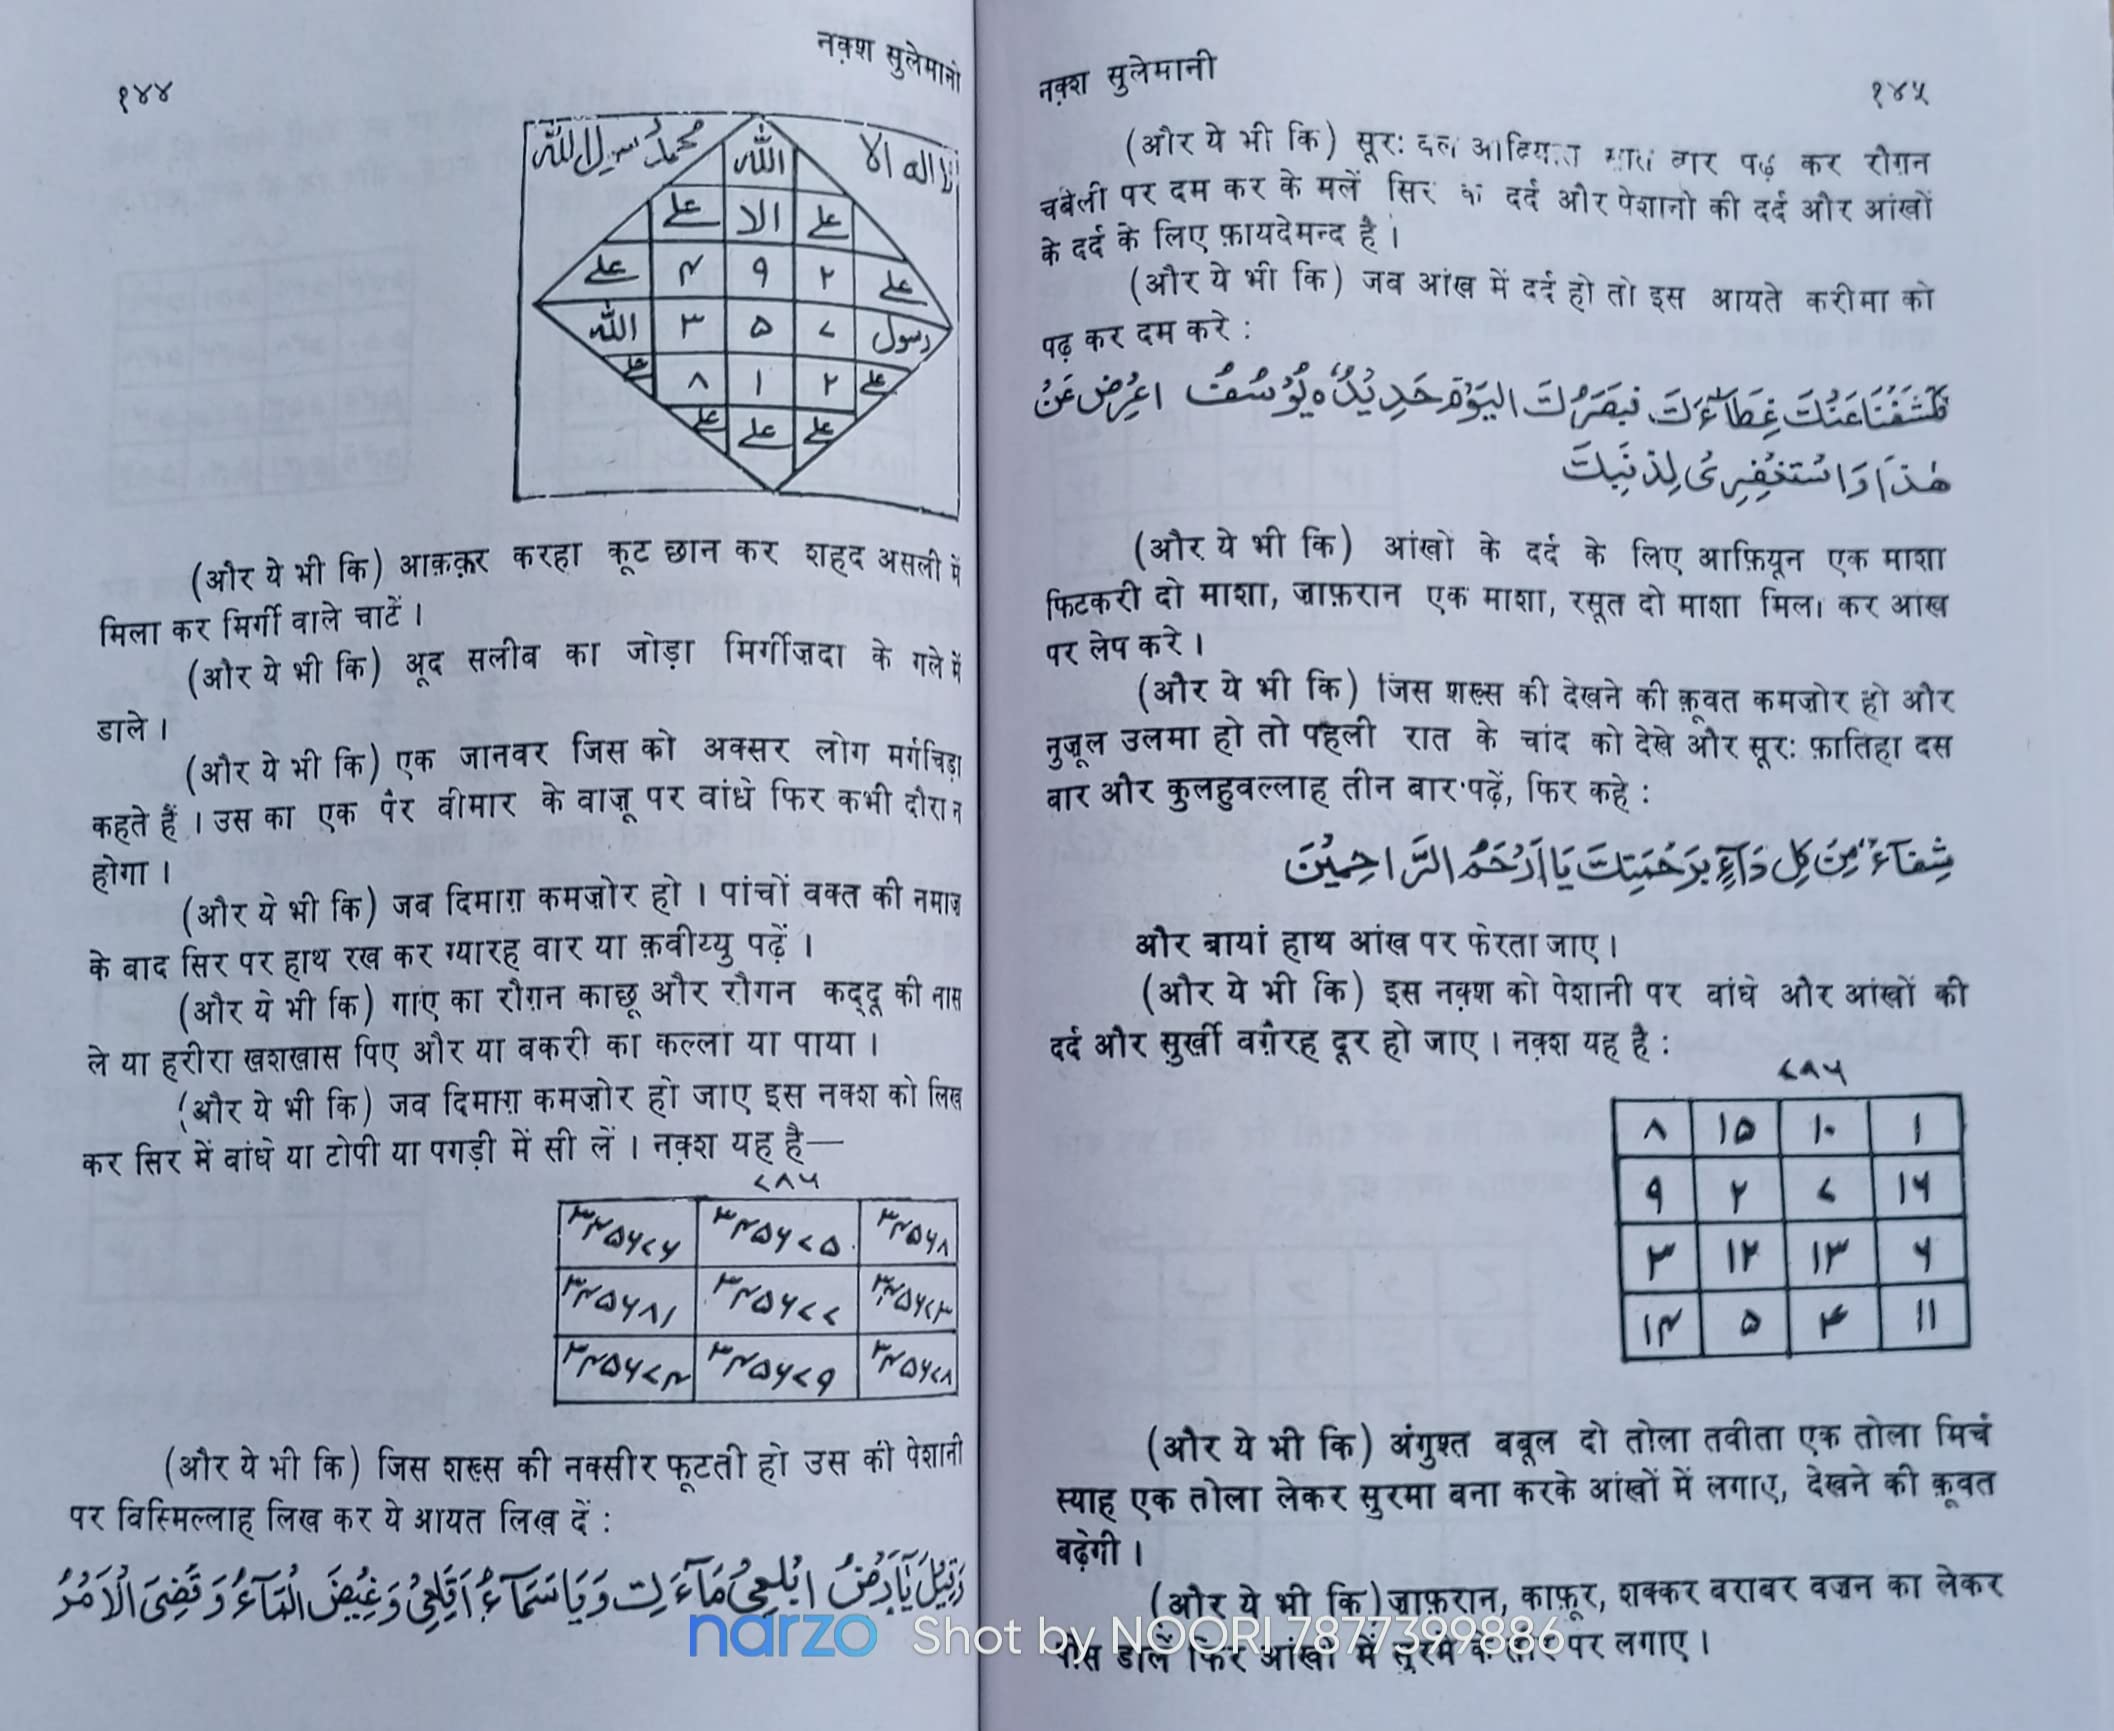 नक़्श सुलेमानी
१४४
محمد رسول الله
الله
لا اله الا
الا
٤ ٩ ٢
الله ٣ ٥ ٧ رسول
٨ ١ ٢
(और ये भी कि) आक़क़र करहा कूट छान कर शहद असली में
मिला कर मिर्गी वाले चाटें ।
(और ये भी कि) अूद सलीब का जोड़ा मिर्गीज़दा के गले में
डाले ।
(और ये भी कि) एक जानवर जिस को अक्सर लोग मर्गचिड़ा
कहते हैं । उस का एक पैर बीमार के बाज़ू पर बांधे फिर कभी दौरा न
होगा ।
(और ये भी कि) जब दिमाग़ कमज़ोर हो । पांचों वक्त की नमाज़
के बाद सिर पर हाथ रख कर ग्यारह बार या क़वीय्यु पढ़ें ।
(और ये भी कि) गाए का रौग़न काछू और रौगन कद्दू की नास
ले या हरीरा खशखास पिए और या बकरी का कल्ला या पाया ।
(और ये भी कि) जब दिमाग़ कमज़ोर हो जाए इस नक्श को लिख
कर सिर में बांधे या टोपी या पगड़ी में सी लें । नक़्श यह है—
٧٨٦
٣٤٥٦٧٥ ٣٤٥٦٨
٣٤٥٦٨١ ٣٤٥٦٧٧
٣٤٥٦٧٤ ٣٤٥٦٧٩ ٣٤٥٦٧٨
(और ये भी कि) जिस शख्स की नक्सीर फूटती हो उस की पेशानी
पर बिस्मिल्लाह लिख कर ये आयत लिख दें :
وَقِيْلَ يَآ اَرْضُ ابْلَعِىْ مَآءَكِ وَيَا سَمَآءُ اَقْلِعِىْ وَغِيْضَ الْمَآءُ وَقُضِىَ الْاَمْرُ
नक़्श सुलेमानी
१४५
(और ये भी कि) सूरः बार पढ़ कर रौग़न
चंबेली पर दम कर के मलें सिर के दर्द और पेशानी की दर्द और आंखों
के दर्द के लिए फ़ायदेमन्द है ।
(और ये भी कि) जब आंख में दर्द हो तो इस आयते करीमा को
पढ़ कर दम करे :
فَكَشَفْنَا عَنْكَ غِطَآءَكَ فَبَصَرُكَ الْيَوْمَ حَدِيْدٌ ه يُوْسُفُ اَعْرِضْ عَنْ
هٰذَا وَاسْتَغْفِرِىْ لِذَنْبِكَ
(और ये भी कि) आंखों के दर्द के लिए आफ़ियून एक माशा
फिटकरी दो माशा, ज़ाफ़रान एक माशा, रसूत दो माशा मिला कर आंख
पर लेप करे ।
(और ये भी कि) जिस शख्स की देखने की क़ूवत कमज़ोर हो और
नुज़ूल उलमा हो तो पहली रात के चांद को देखे और सूरः फ़ातिहा दस
बार और क़ुलहुवल्लाह तीन बार पढ़ें, फिर कहे :
شِفَآءٌ مِّنْ كُلِّ دَآءٍ بِرَحْمَتِكَ يَا اَرْحَمَ الرَّاحِمِيْنَ
और बायां हाथ आंख पर फेरता जाए ।
(और ये भी कि) इस नक़्श को पेशानी पर बांधे और आंखों की
दर्द और सुर्खी वग़ैरह दूर हो जाए । नक़्श यह है :
٧٨٦
٨ ١٥ ١٠ ١
٩ ٢ ٧ ١٦
٣ ١٢ ١٣ ٦
١٤ ٥ ٤ ١١
(और ये भी कि) अंगुश्त बबूल दो तोला तवीता एक तोला मिर्च
स्याह एक तोला लेकर सुरमा बना करके आंखों में लगाए, देखने की क़ूवत
बढ़ेगी ।
(और ये भी कि) ज़ाफ़रान, काफ़ूर, शक्कर बराबर वज़न का लेकर
पीस डालें फिर आंखों में सुरमे के तौर पर लगाए ।
narzo Shot by NOORI 7877399886